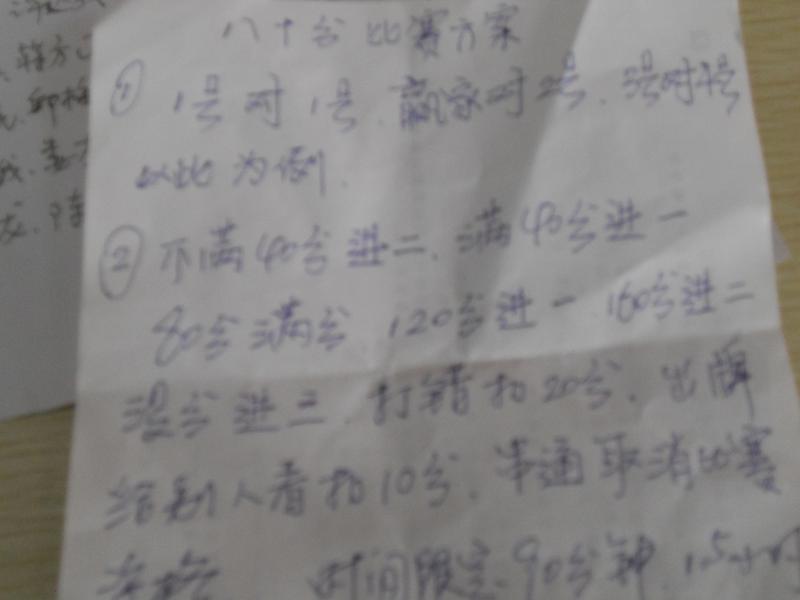 八十分比赛方案
① 1号对1号、赢家对2号、3号对4号
以此为例.
② 不满40分进二、满40分进一
80分满分 120分进一 160分进二
分进三、打错扣20分、出牌
给别人看扣10分、串通取消比赛
资格 时间限定 90分钟 1.5小时